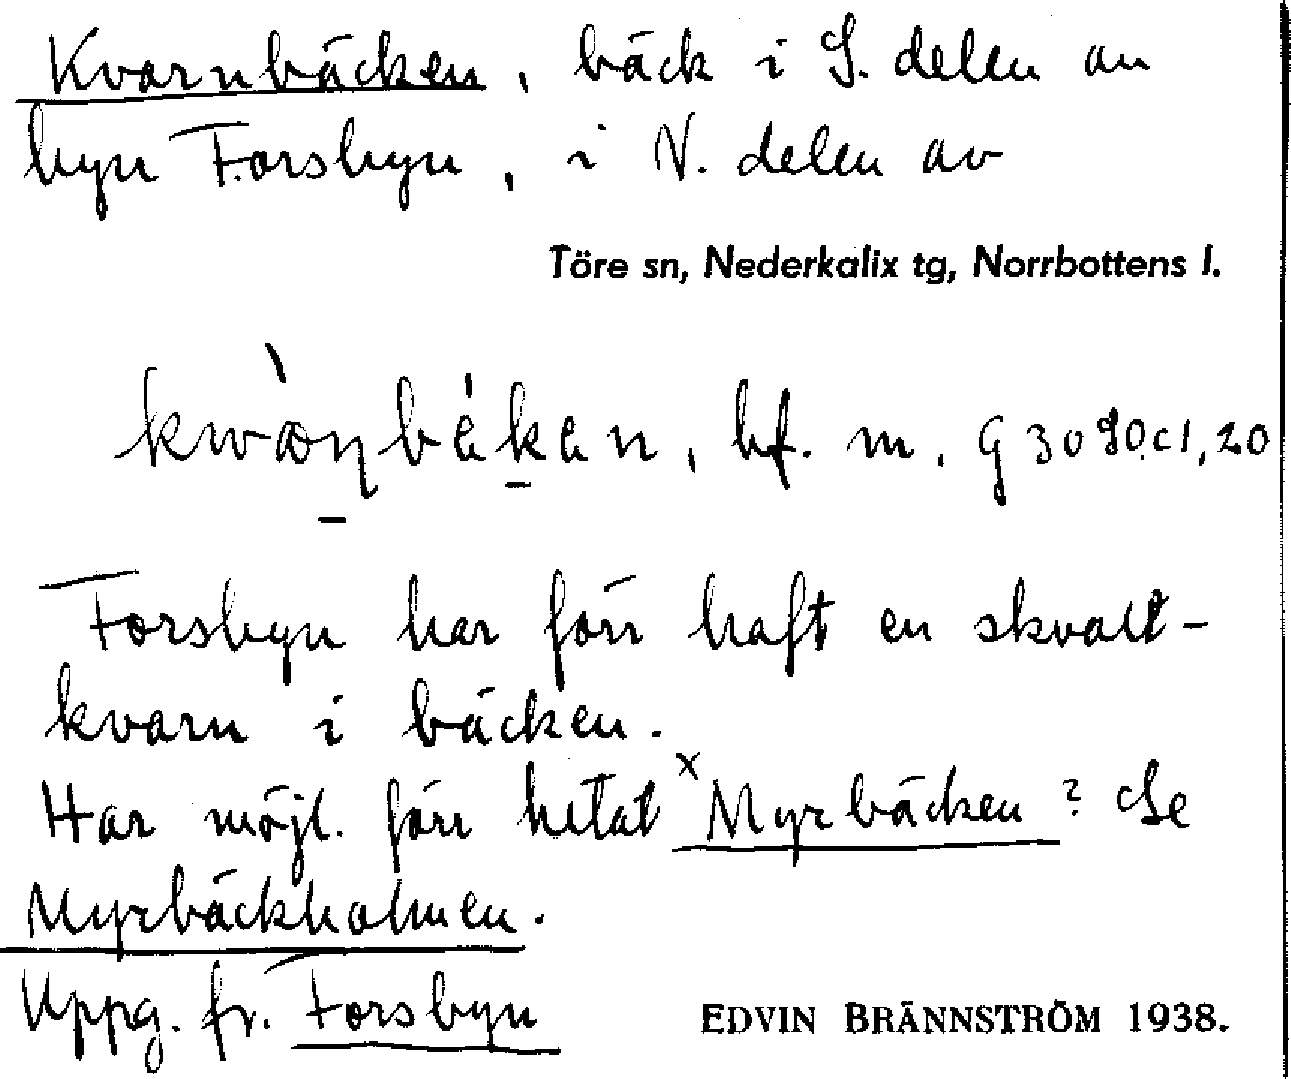 Kvarnbäcken, bäck i S. delen av
byn Forsbyn, i N. delen av
Töre sn, Nederkalix tg, Norrbottens l.
bf. m.
Forsbyn har förr haft en skvalt-
kvarn i bäcken.
Har möjl. förr hetat ˣMyrbäcken? Se
Myrbäckholmen.
Uppg. fr. Forsbyn
EDVIN BRÄNNSTRÖM 1938.